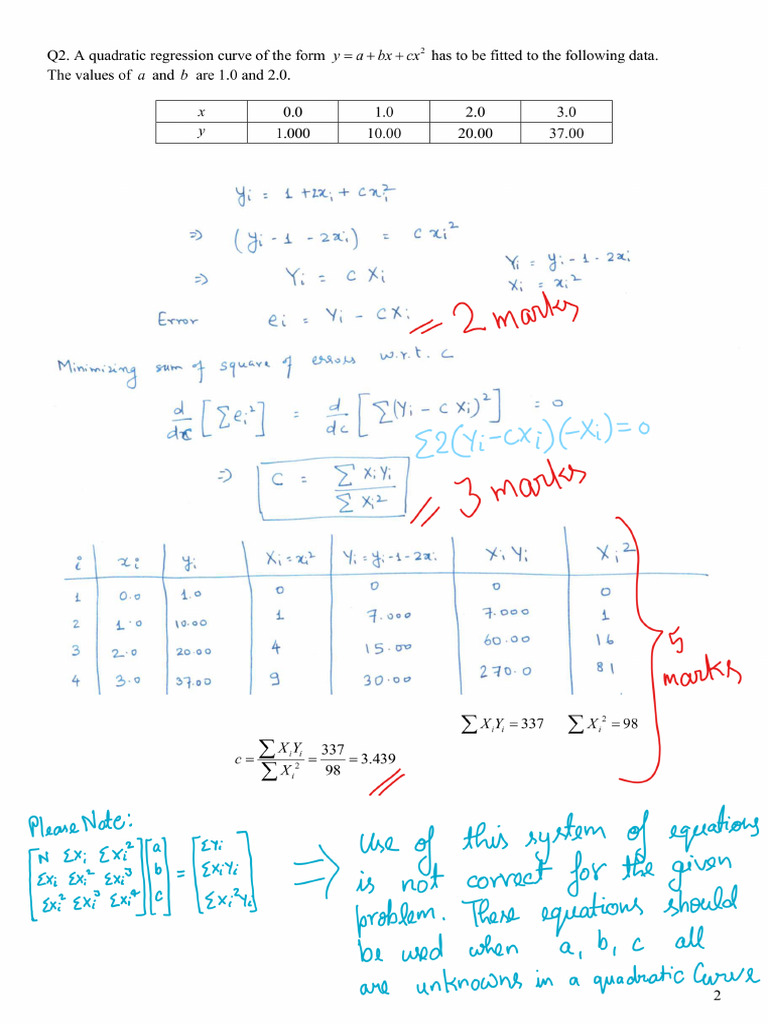 Q2. A quadratic regression curve of the form y = a + bx + cx² has to be fitted to the following data.
The values of a and b are 1.0 and 2.0.
x 0.0 1.0 2.0 3.0
y 1.000 10.00 20.00 37.00
yᵢ = 1 + 2xᵢ + cxᵢ²
⇒ (yᵢ - 1 - 2xᵢ) = c xᵢ²
⇒ Yᵢ = c Xᵢ
Yᵢ = yᵢ - 1 - 2xᵢ
Xᵢ = xᵢ²
Error eᵢ = Yᵢ - cXᵢ
= 2 marks
Minimizing sum of square of errors w.r.t. c
d/dc [Σeᵢ²] = d/dc [Σ(Yᵢ - c Xᵢ)²] = 0
Σ2(Yᵢ-cXᵢ)(-Xᵢ)=0
⇒ c = Σ XᵢYᵢ / Σ Xᵢ²
= 3 marks
i xᵢ yᵢ Xᵢ = xᵢ² Yᵢ = yᵢ-1-2xᵢ Xᵢ Yᵢ Xᵢ²
1 0.0 1.0 0 0 0 0
2 1.0 10.00 1 7.000 7.000 1
3 2.0 20.00 4 15.00 60.00 16
4 3.0 37.00 9 30.00 270.0 81
5 marks
∑ XᵢYᵢ = 337 ∑ Xᵢ² = 98
c = ∑ XᵢYᵢ / ∑ Xᵢ² = 337 / 98 = 3.439
Please Note:
[N Σxᵢ Σxᵢ²] [a] = [Σyᵢ]
[Σxᵢ Σxᵢ² Σxᵢ³] [b] [Σxᵢyᵢ]
[Σxᵢ² Σxᵢ³ Σxᵢ⁴] [c] [Σxᵢ²yᵢ]
⇒ Use of this system of equations
is not correct for the given
problem. These equations should
be used when a, b, c all
are unknowns in a quadratic Curve
2